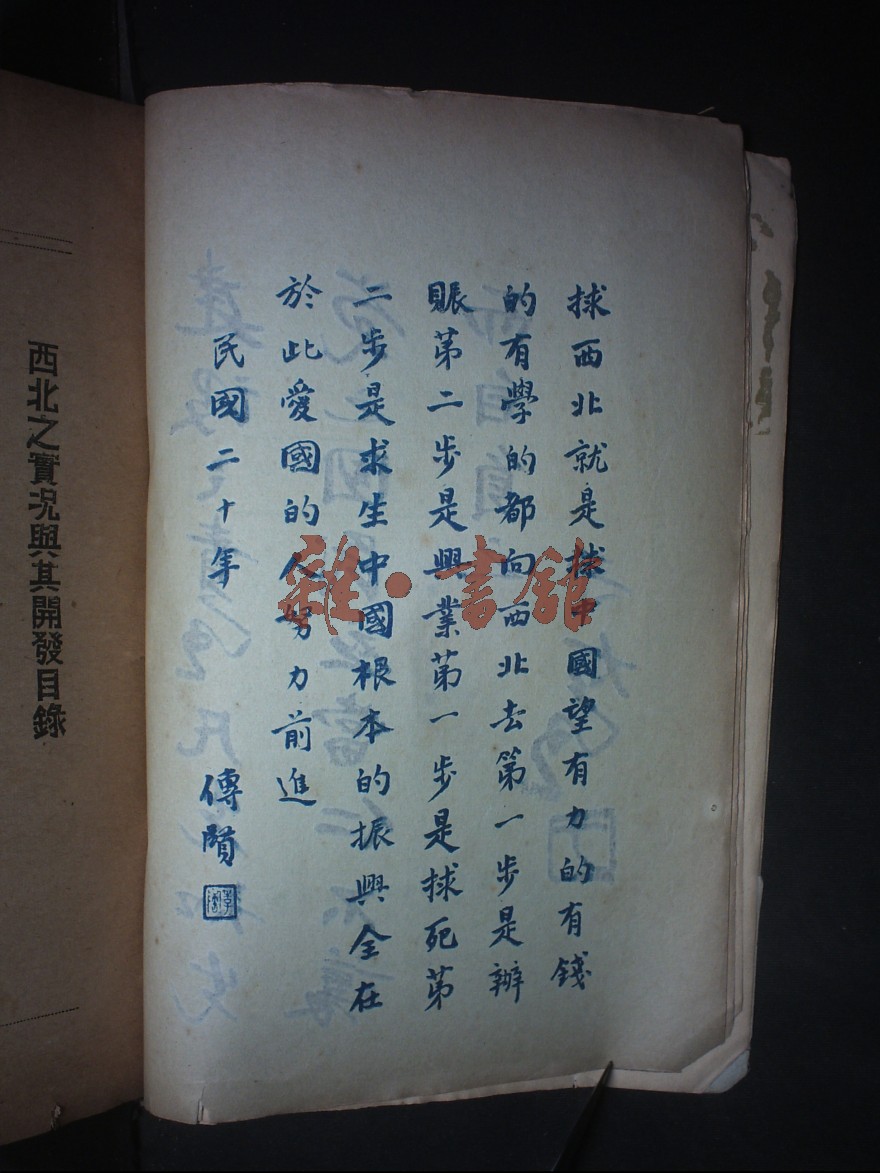 捄西北就是捄中國望有力的有錢
的有學的都向西北去第一步是辦
賑第二步是興業第一步是捄死第
二步是求生中國根本的振興全在
於此愛國的人努力前進
民國二十年
西北之實况與其開發目錄
雜·書館